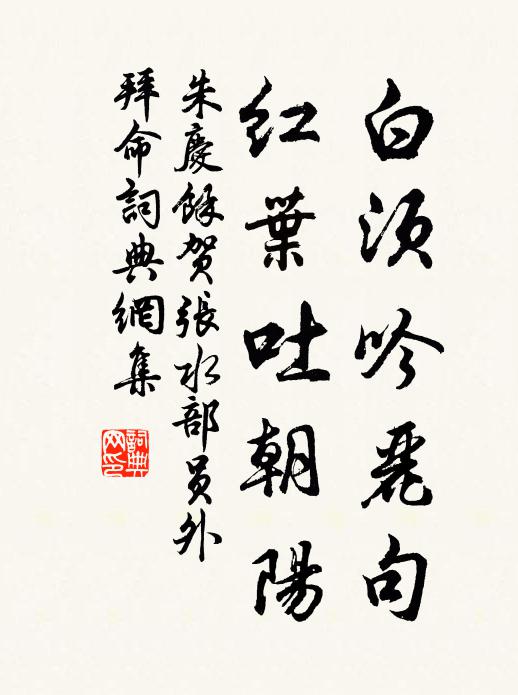 白须吟麗句
红葉吐朝陽
朱慶餘贺張水部员外
拜命詞典網集
詞典网印